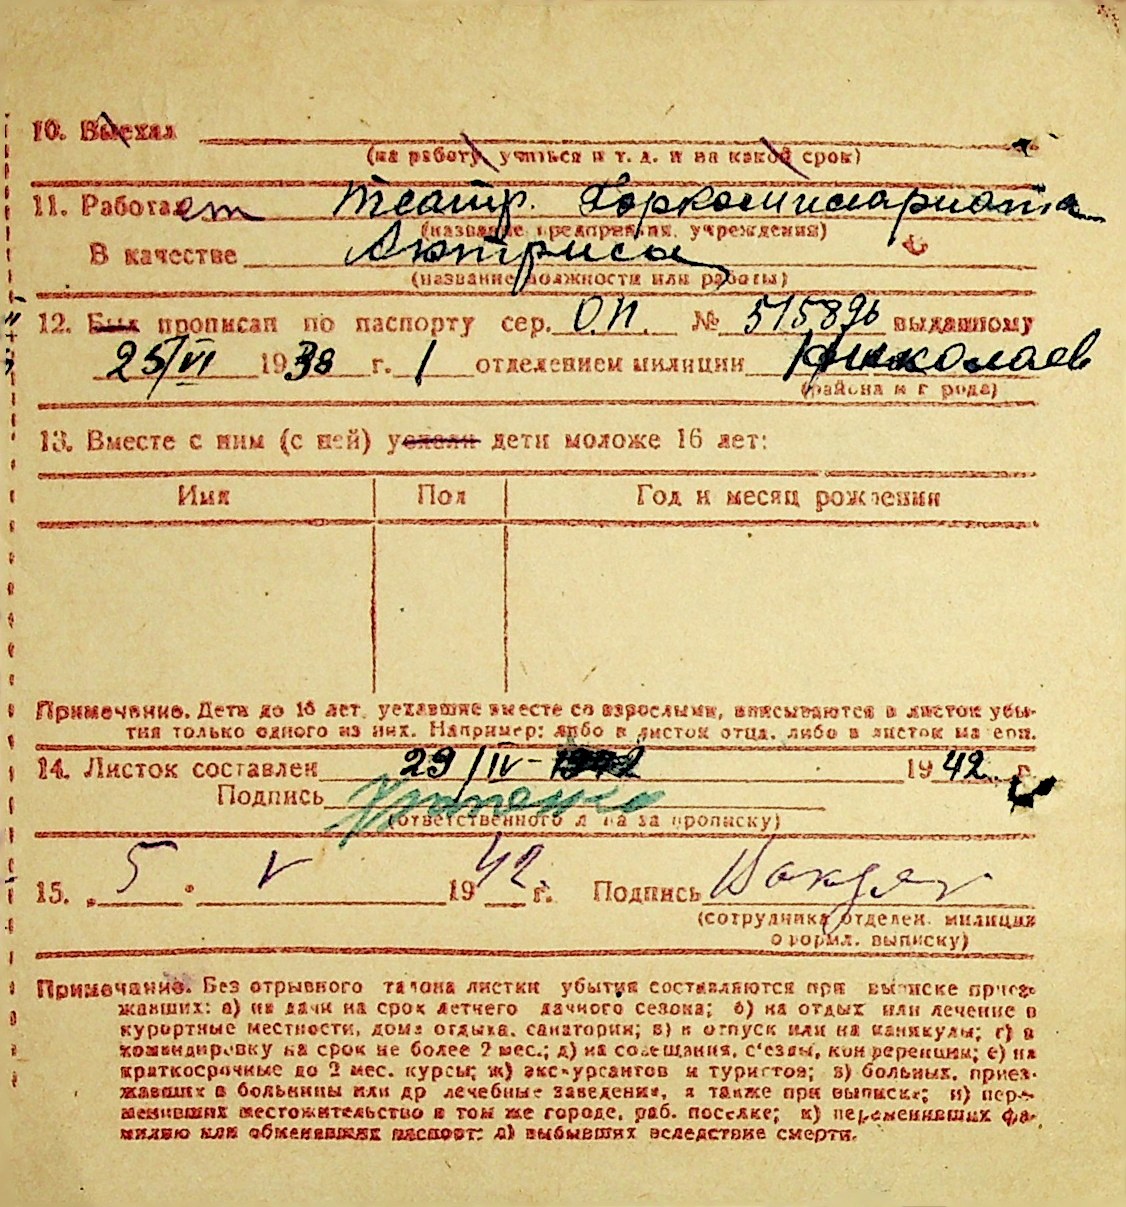 10. Выехал
(на работу, учиться и т. д. и на какой срок)
11. Работает театр. Горкомиссариата
(название предприятия, учреждения)
В качестве Актриса
(название должности или работы)
12. Был прописан по паспорту сер. О.П. № 515896 выданному
25/VI 1938 г. 1 отделением милиции Николаев
(района и города)
13. Вместе с ним (с ней) уехали дети моложе 16 лет:
Имя Пол Год и месяц рождения
Примечание. Дети до 16 лет, уехавшие вместе со взрослыми, вписываются в листок убы-
тия только одного из них. Например: либо в листок отца, либо в листок матери.
14. Листок составлен 29/IV - 1942 1942 г.
Подпись
(ответственного лица за прописку)
15. 5. V 1942 г. Подпись
(сотрудника отделен. милиции
оформл. выписку)
Примечание. Без отрывного талона листки убытия составляются при выписке приез-
жавших: а) на дачи на срок летнего дачного сезона; б) на отдых или лечение в
курортные местности, дома отдыха, санатории; в) в отпуск или на каникулы; г) в
командировку на срок не более 2 мес.; д) на совещания, с'езды, конференции; е) на
краткосрочные до 2 мес. курсы; ж) экскурсантов и туристов; з) больных, приез-
жавших в больницы или др лечебные заведения, а также при выписке; и) пере-
менивших местожительство в том же городе, раб. поселке; к) переменивших фа-
милию или обменявших паспорт; л) выбывших вследствие смерти.